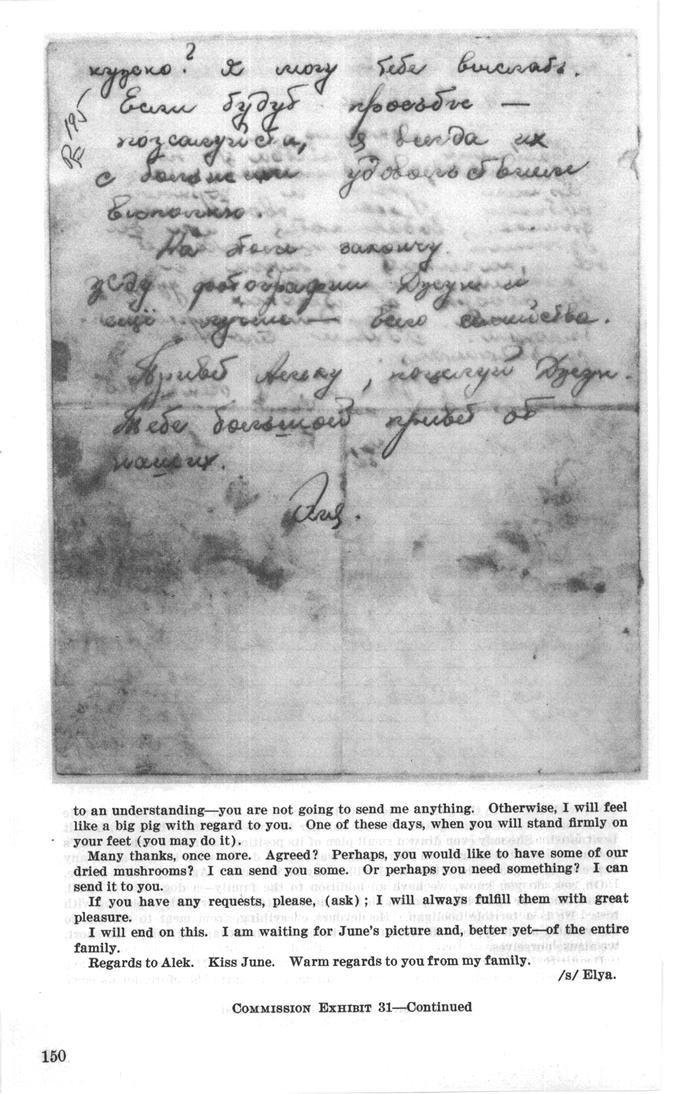 нужно? Я могу тебе выслать.
Если будут просьбы —
пожалуйста, я всегда их
с большим удовольствием
выполню.
На этом закончу.
Жду фотографии Джун и
ещё лучше — всего семейства.
Привет Алеку, поцелуй Джун.
Тебе большой привет от
наших.
Эля.
to an understanding—you are not going to send me anything. Otherwise, I will feel
like a big pig with regard to you. One of these days, when you will stand firmly on
your feet (you may do it).
Many thanks, once more. Agreed? Perhaps, you would like to have some of our
dried mushrooms? I can send you some. Or perhaps you need something? I can
send it to you.
If you have any requests, please, (ask) ; I will always fulfill them with great
pleasure.
I will end on this. I am waiting for June's picture and, better yet—of the entire
family.
Regards to Alek. Kiss June. Warm regards to you from my family.
/s/ Elya.
COMMISSION EXHIBIT 31—Continued
150